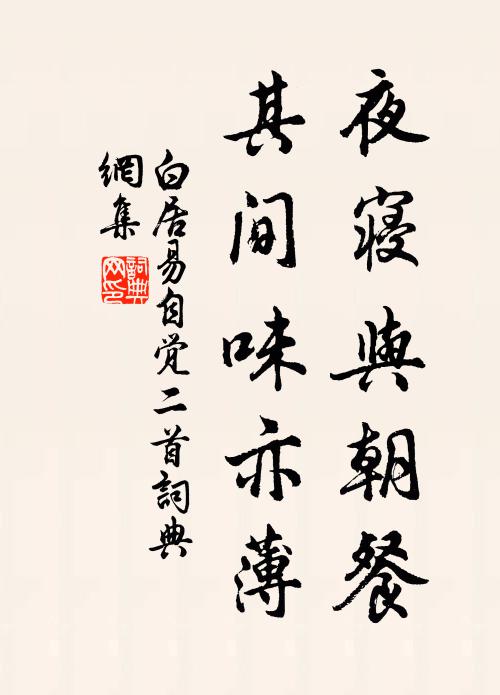 夜寝與朝餐
其间味亦薄
白居易自觉二首詞典
網集
詞典
网印